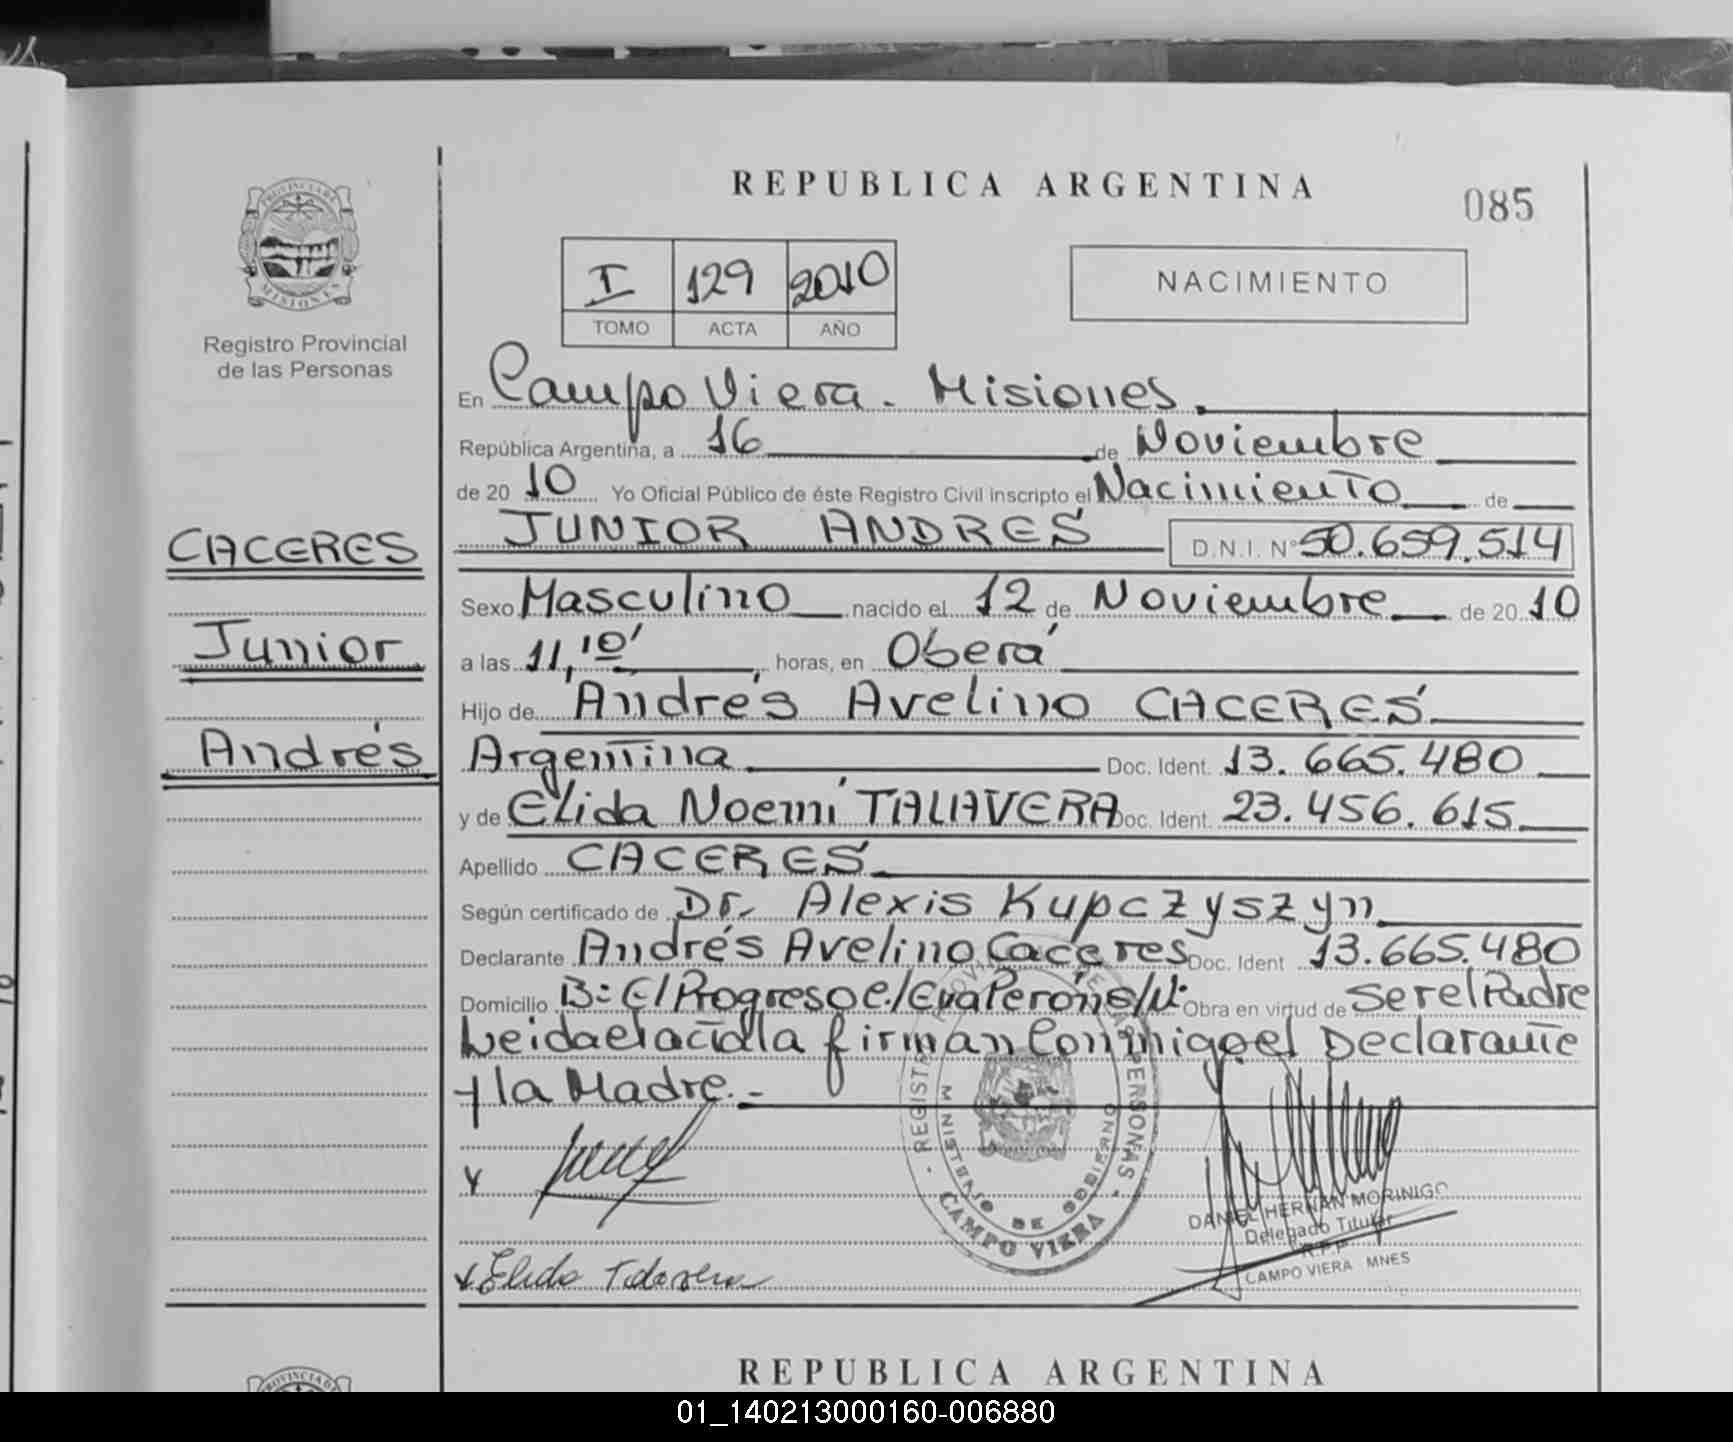 REPUBLICA ARGENTINA
085
I 129 2010
TOMO ACTA AÑO
NACIMIENTO
PROVINCIA DE
MISIONES
Registro Provincial
de las Personas
CACERES
Junior
Andrés
En Campo Viera - Misiones.
República Argentina, a 16 de Noviembre
de 20 10 Yo Oficial Público de éste Registro Civil inscripto el Nacimiento de
JUNIOR ANDRES D.N.I. Nº 50.659.514
Sexo Masculino nacido el 12 de Noviembre de 20 10
a las 11,10' horas, en Oberá
Hijo de Andrés Avelino CACERES
Argentina Doc. Ident. 13.665.480
y de Elida Noemí TALAVERA Doc. Ident. 23.456.615
Apellido CACERES
Según certificado de Dr. Alexis Kupczyszyn
Declarante Andrés Avelino Caceres Doc. Ident 13.665.480
Domicilio B: El Progreso c/Eva Perón s/N: Obra en virtud de Ser el Padre
Leida el acta la firman Conmigo el Declarante
y la Madre.-
MINISTERIO DE GOBIERNO
CAMPO VIERA
DANIEL HERNAN MORINIGO
Delegado Titular
R.P.P
CAMPO VIERA MNES
Elida Talavera
REPUBLICA ARGENTINA
01_140213000160-006880